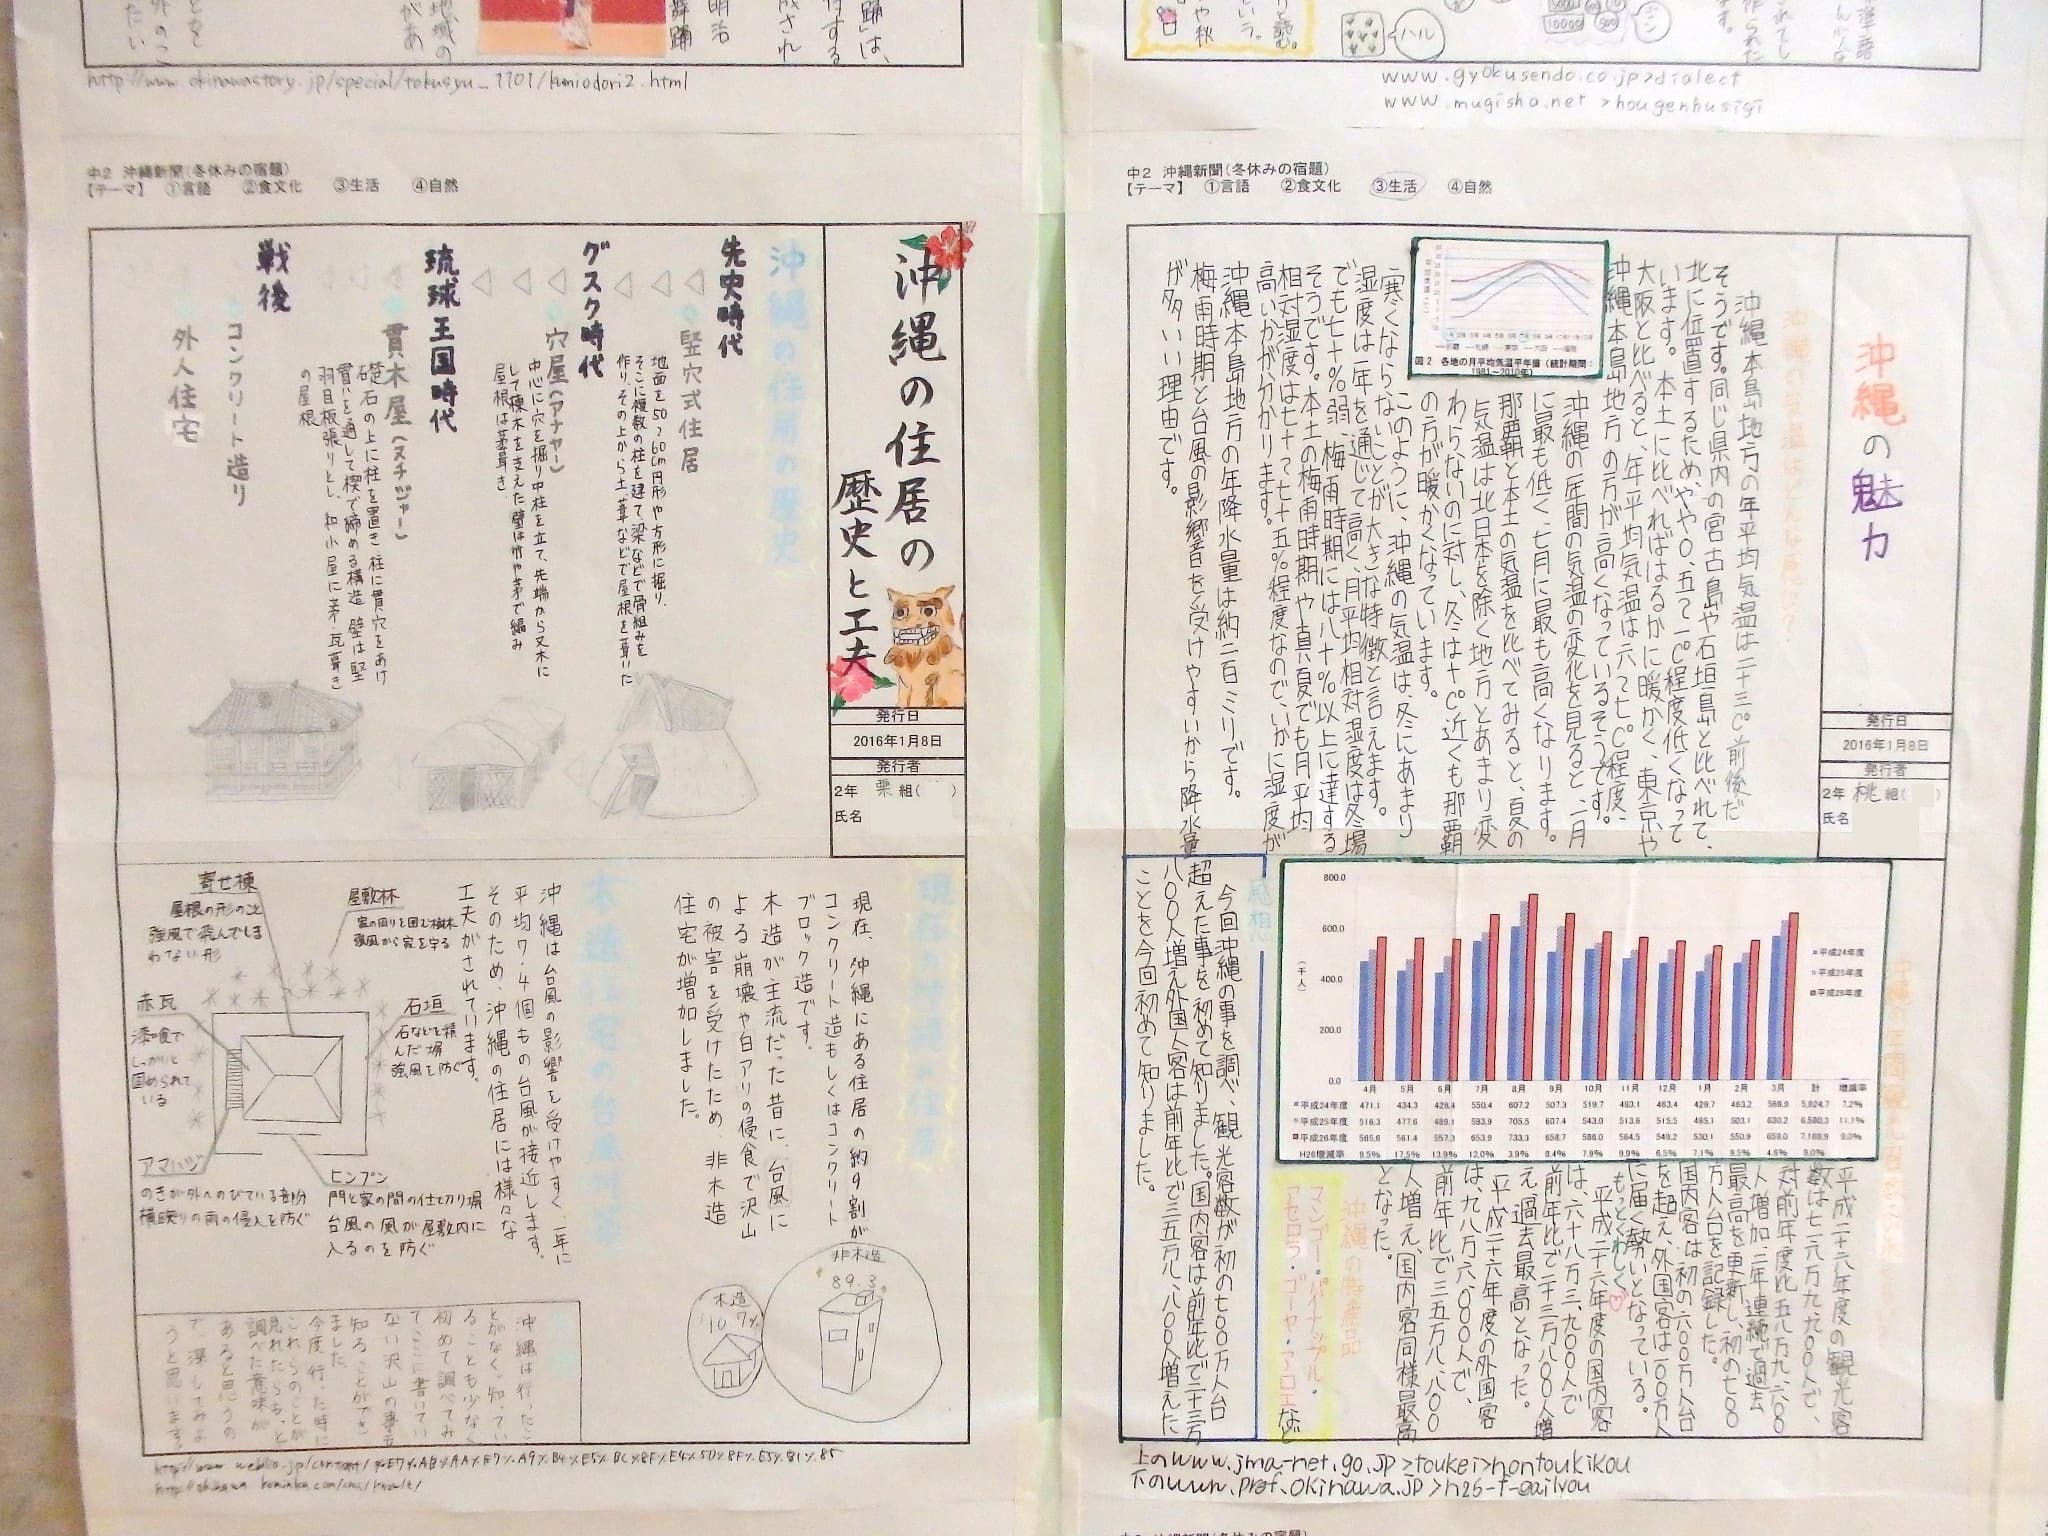 http://www.okinawastory.jp/special/tokusyu_1101/kumiodori2.html
www.gyokusendo.co.jp>dialect
www.mugisha.net >hougenhusigi
ハル
中2 沖縄新聞(冬休みの宿題)
【テーマ】 ①言語 ②食文化 ③生活 ④自然
沖縄の住居の
歴史と工夫
発行日
2016年1月8日
発行者
2年 栗組( )
氏名
沖縄の住居の歴史
先史時代
竪穴式住居
地面を50~60cm円形や方形に掘り、
そこに複数の柱を建て、梁などで骨組みを
作り、その上から土、葦などで屋根を葺いた
グスク時代
穴屋(アナヤー)
中心に穴を掘り中柱を立て、先端から叉木に
して棟木を支えた壁は竹や茅で編み
屋根は茅葺き
琉球王国時代
貫木屋(ヌチジャー)
礎石の上に柱を置き柱に貫穴をあけ
貫いを通して楔で締める構造 壁は堅
羽目板張りとし、和小屋に茅・瓦葺き
の屋根
戦後
コンクリート造り
外人住宅
現在の沖縄の住居
現在、沖縄にある住居の約9割が
コンクリート造もしくはコンクリート
ブロック造です。
木造が主流だった昔に、台風に
よる崩壊や白アリの侵食で沢山
の被害を受けたため、非木造
住宅が増加しました。
非木造
89.3
木造
10.7%
木造住宅の台風対策
沖縄は台風の影響を受けやすく、一年に
平均7.4個もの台風が接近します。
そのため、沖縄の住居には様々な
工夫がされています。
寄せ棟
屋根の形のこと
強風で飛んでしま
わない形
屋敷林
家の周りを囲む樹木
強風から家を守る
赤瓦
漆喰で
しっかりと
固められて
いる
石垣
石などを積
んだ塀
強風を防ぐ
アマハジ
のきが外へのびている部分
横殴りの雨の侵入を防ぐ
ヒンプン
門と家の間の仕切り塀
台風の風が屋敷内に
入るのを防ぐ
沖縄は行ったこ
とがなく、知ってい
ることも少なく
初めて調べてみ
てここに書いてい
ない沢山の事を
知ることができ
ました。
今度行った時に
これらのことが
見れたらもっと
調べた意味が
あると思うの
で、探してみよ
うと思います。
中2 沖縄新聞(冬休みの宿題)
【テーマ】 ①言語 ②食文化 ③生活 ④自然
沖縄の魅力
発行日
2016年1月8日
発行者
2年 桃組( )
氏名
沖縄の気温はどんな感じ?
沖縄本島地方の年平均気温は二十三℃前後だ
そうです。同じ県内の宮古島や石垣島と比べて、
北に位置するため、やや〇.五~一℃程度低くなって
います。本土に比べればはるかに暖かく、東京や
大阪と比べると、年平均気温は六~七℃程度、
沖縄本島地方の方が高くなっているそうです。
沖縄の年間の気温の変化を見ると、一月
に最も低く、七月に最も高くなります。
那覇と本土の気温を比べてみると、夏の
気温は北日本を除く地方とあまり変
わらないのに対し、冬は十℃近くも那覇
の方が暖かくなっています。
このように、沖縄の気温は、冬にあまり
寒くならないことが大きな特徴と言えます。
湿度は一年を通じて高く、月平均相対湿度は冬場
でも七十%弱、梅雨時期には八十%以上に達する
そうです。本土の梅雨時期や真夏でも月平均
相対湿度は七十~七十五%程度なので、いかに湿度が
高いかが分かります。
沖縄本島地方の年降水量は約二百ミリです。
梅雨時期と台風の影響を受けやすいから降水量
が多いい理由です。
図2 各地の月平均気温平年値(統計期間:
1981~2010年)
800.0
600.0
400.0
200.0
0.0
(千人)
平成24年度
平成25年度
平成26年度
4月 5月 6月 7月 8月 9月 10月 11月 12月 1月 2月 3月 計 増減率
平成24年度 471.1 434.3 426.4 550.4 607.2 507.3 519.7 483.1 463.4 429.7 463.2 568.9 5,924.7 7.2%
平成25年度 516.3 477.6 489.1 583.9 705.5 607.4 543.0 513.6 515.5 495.1 503.1 630.2 6,580.3 11.1%
平成26年度 565.6 561.4 557.3 653.9 733.3 658.7 586.0 564.5 549.2 530.1 550.9 659.0 7,169.9 9.0%
H26増減率 9.5% 17.5% 13.9% 12.0% 3.9% 8.4% 7.9% 9.9% 6.5% 7.1% 9.5% 4.6% 9.0%
平成二十六年度の観光客
数は七一六万九、九〇〇人で、
対前年度比五八万九、六〇〇
人増加、二年連続で過去
最高を更新し、初の七〇〇
万人台を記録した。
国内客は初の六〇〇万人台
を超え、外国客は一〇〇万人
に届く勢いとなっている。
もっとくわしく♡
平成二十六年度の国内客
は、六一八万三、九〇〇人で
前年比で二十三万八〇〇人増
え、過去最高となった。
平成二十六年度の外国客
は、九八万六、〇〇〇人で、
前年比で三五万八、八〇〇
人増え、国内客同様最高
となった。
沖縄の特産品
マンゴー・パイナップル・
アセロラ・ゴーヤ・アロエなど
感想
今回沖縄の事を調べ、観光客数が初の七〇〇万人台
超えた事を初めて知りました。国内客は前年比で二十三万
八〇〇人増え外国人客は前年比で三五万八、八〇〇人増えた
ことを今回初めて知りました。
上のwww.jma-net.go.jp>toukei>hontoukikou
下のwww.pref.okinawa.jp>h26-f-gaikyou